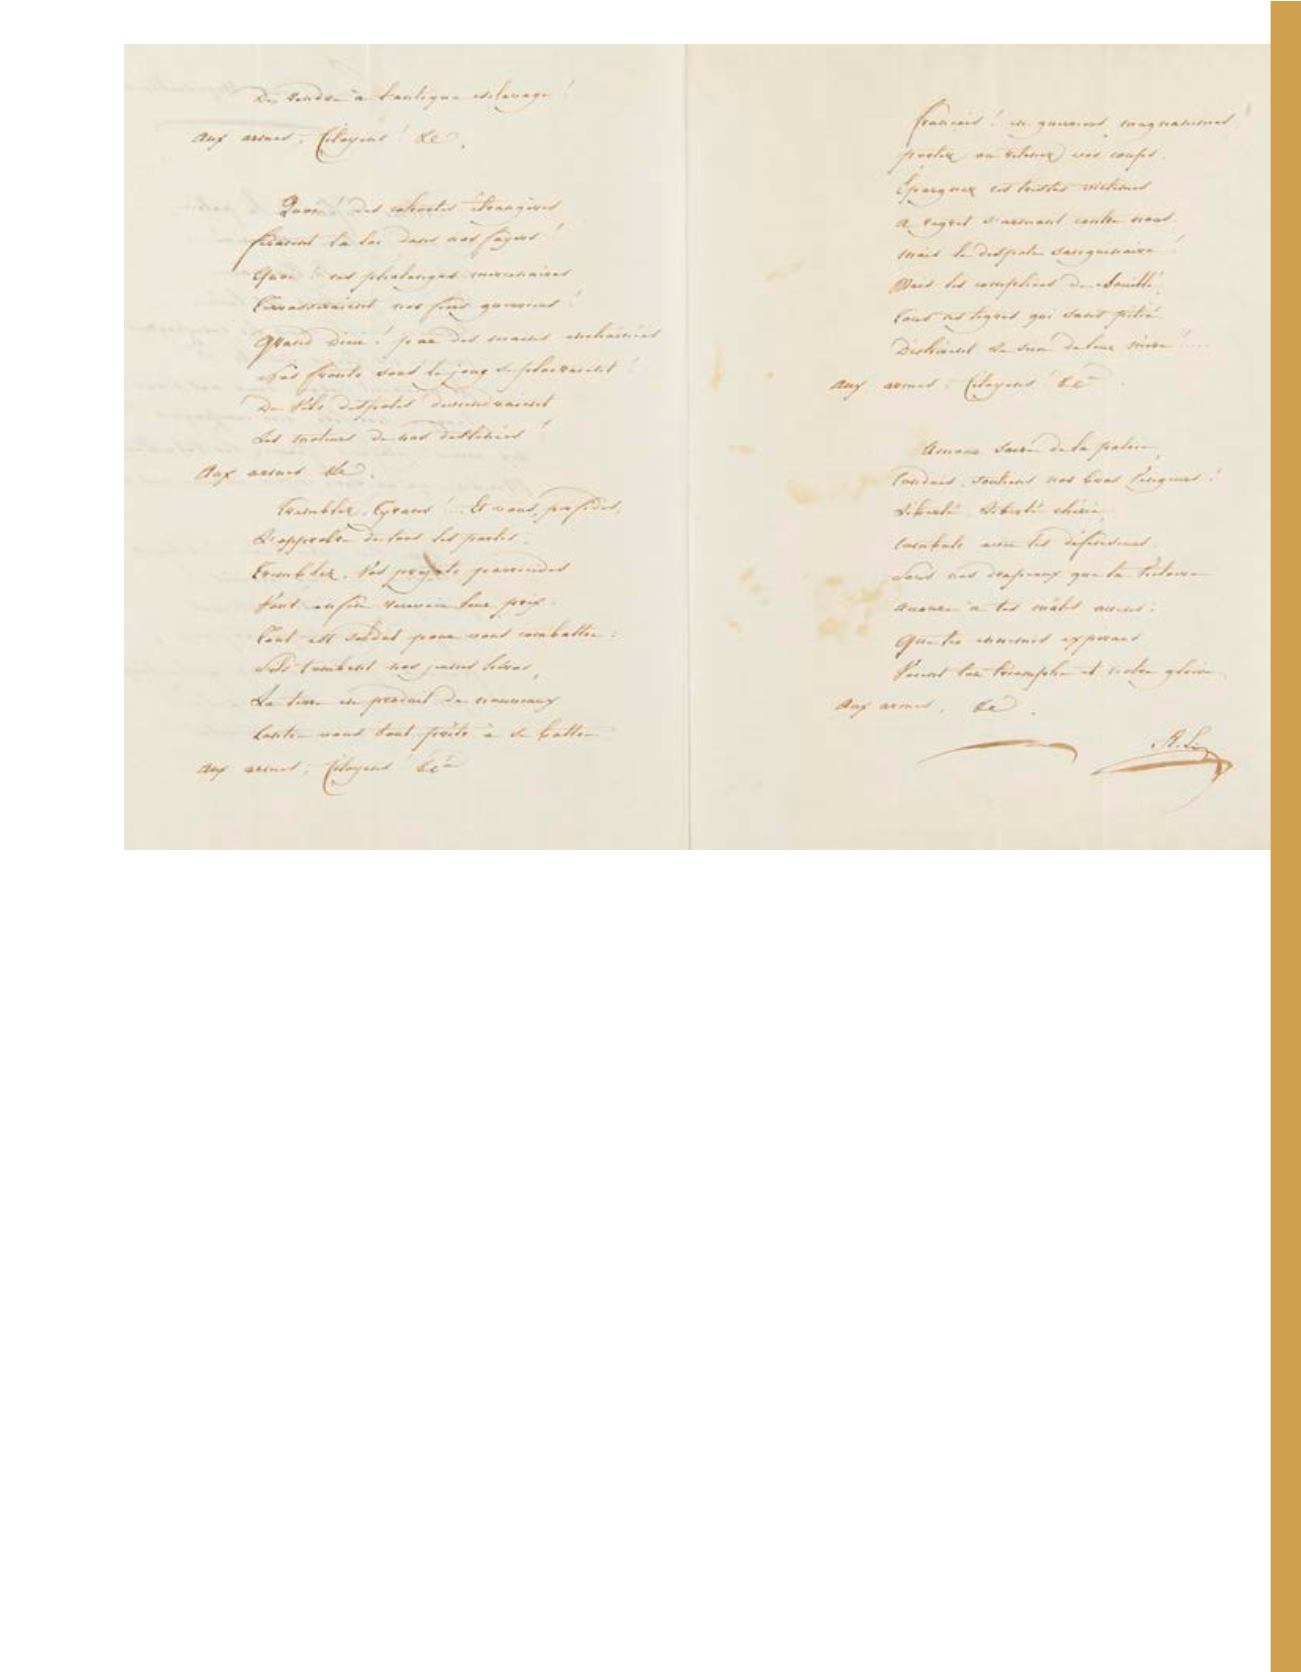 De rendre à l'antique esclavage !
Aux armes, Citoyens ! &c.
Quoi ! des cohortes étrangères
feraient la loi dans nos foyers !
Quoi ! ces phalanges mercenaires
Terrasseraient nos fiers guerriers !
Grand Dieu ! par des mains enchaînées
Nos fronts sous le joug se ploieraient !
De vils despotes deviendraient
Les maîtres de nos destinées !
Aux armes &c.
Tremblez, Tyrans ! Et vous, perfides,
L'opprobre de tous les partis.
Tremblez, Vos projets parricides
Vont enfin recevoir leur prix.
Tout est soldat pour vous combattre :
S'ils tombent nos jeunes héros,
La terre en produit de nouveaux
Contre vous tout prêts à se battre
Aux armes, Citoyens ! &ca
français ! en guerriers magnanimes
portez ou retenez vos coups.
Épargnez ces tristes victimes
A regret s'armant contre nous
Mais le despote sanguinaire !
Mais les complices de Bouillé,
Tous ces tigres qui sans pitié
Déchirent le sein de leur mère ! ....
Aux armes, Citoyens ! &ca.
Amour sacré de la patrie,
Conduis, soutiens nos bras vengeurs !
Liberté, Liberté chérie,
Combats avec tes défenseurs.
Sous nos drapeaux que la Victoire
Accoure à tes mâles accens :
Que tes ennemis expirans
Voient ton triomphe et notre gloire.
Aux armes, &c.
R. L.